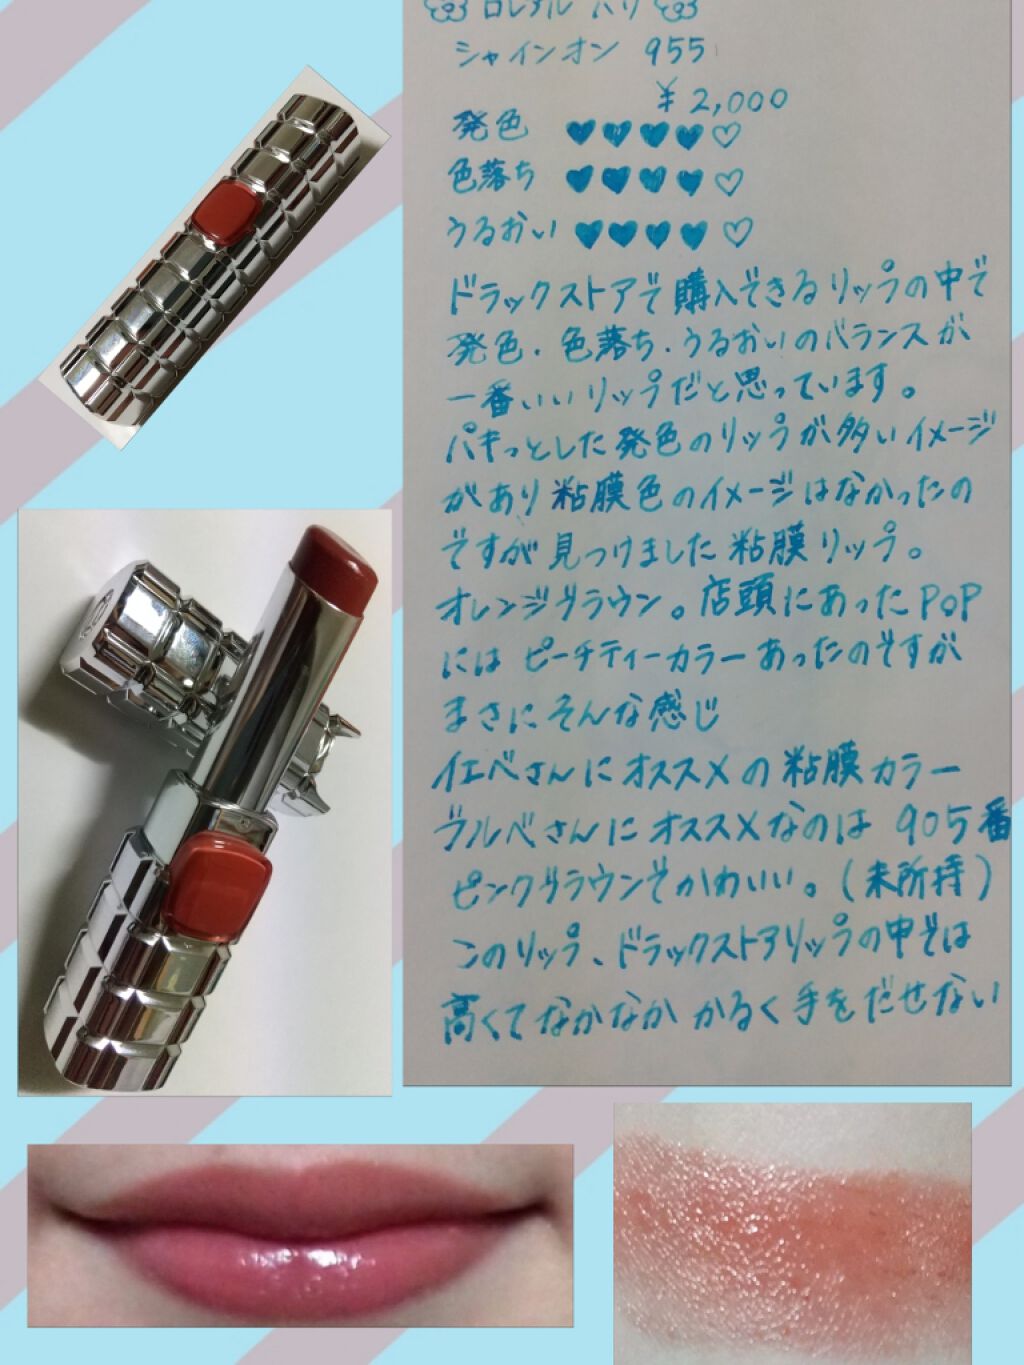 ロレアル パリ
シャインオン 955
¥2,000
発色 ♥♥♥♥♡
色落ち ♥♥♥♥♡
うるおい ♥♥♥♥♡
ドラックストアで購入できるリップの中で
発色.色落ち.うるおいのバランスが
一番いいリップだと思っています。
パキっとした発色のリップが多いイメージ
があり粘膜色のイメージはなかったの
ですが見つけました粘膜リップ。
オレンジブラウン。店頭にあったPOP
には ピーチティーカラーあったのですが
まさにそんな感じ
イエベさんにオススメの粘膜カラー
ブルベさんにオススメなのは 905番
ピンクブラウンでかわいい。(未所持)
このリップ、ドラックストアリップの中では
高くてなかなか かるく手をだせない